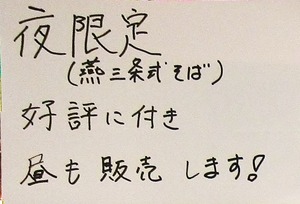 夜限定
(燕三条式そば)
好評に付き
昼も販売します!